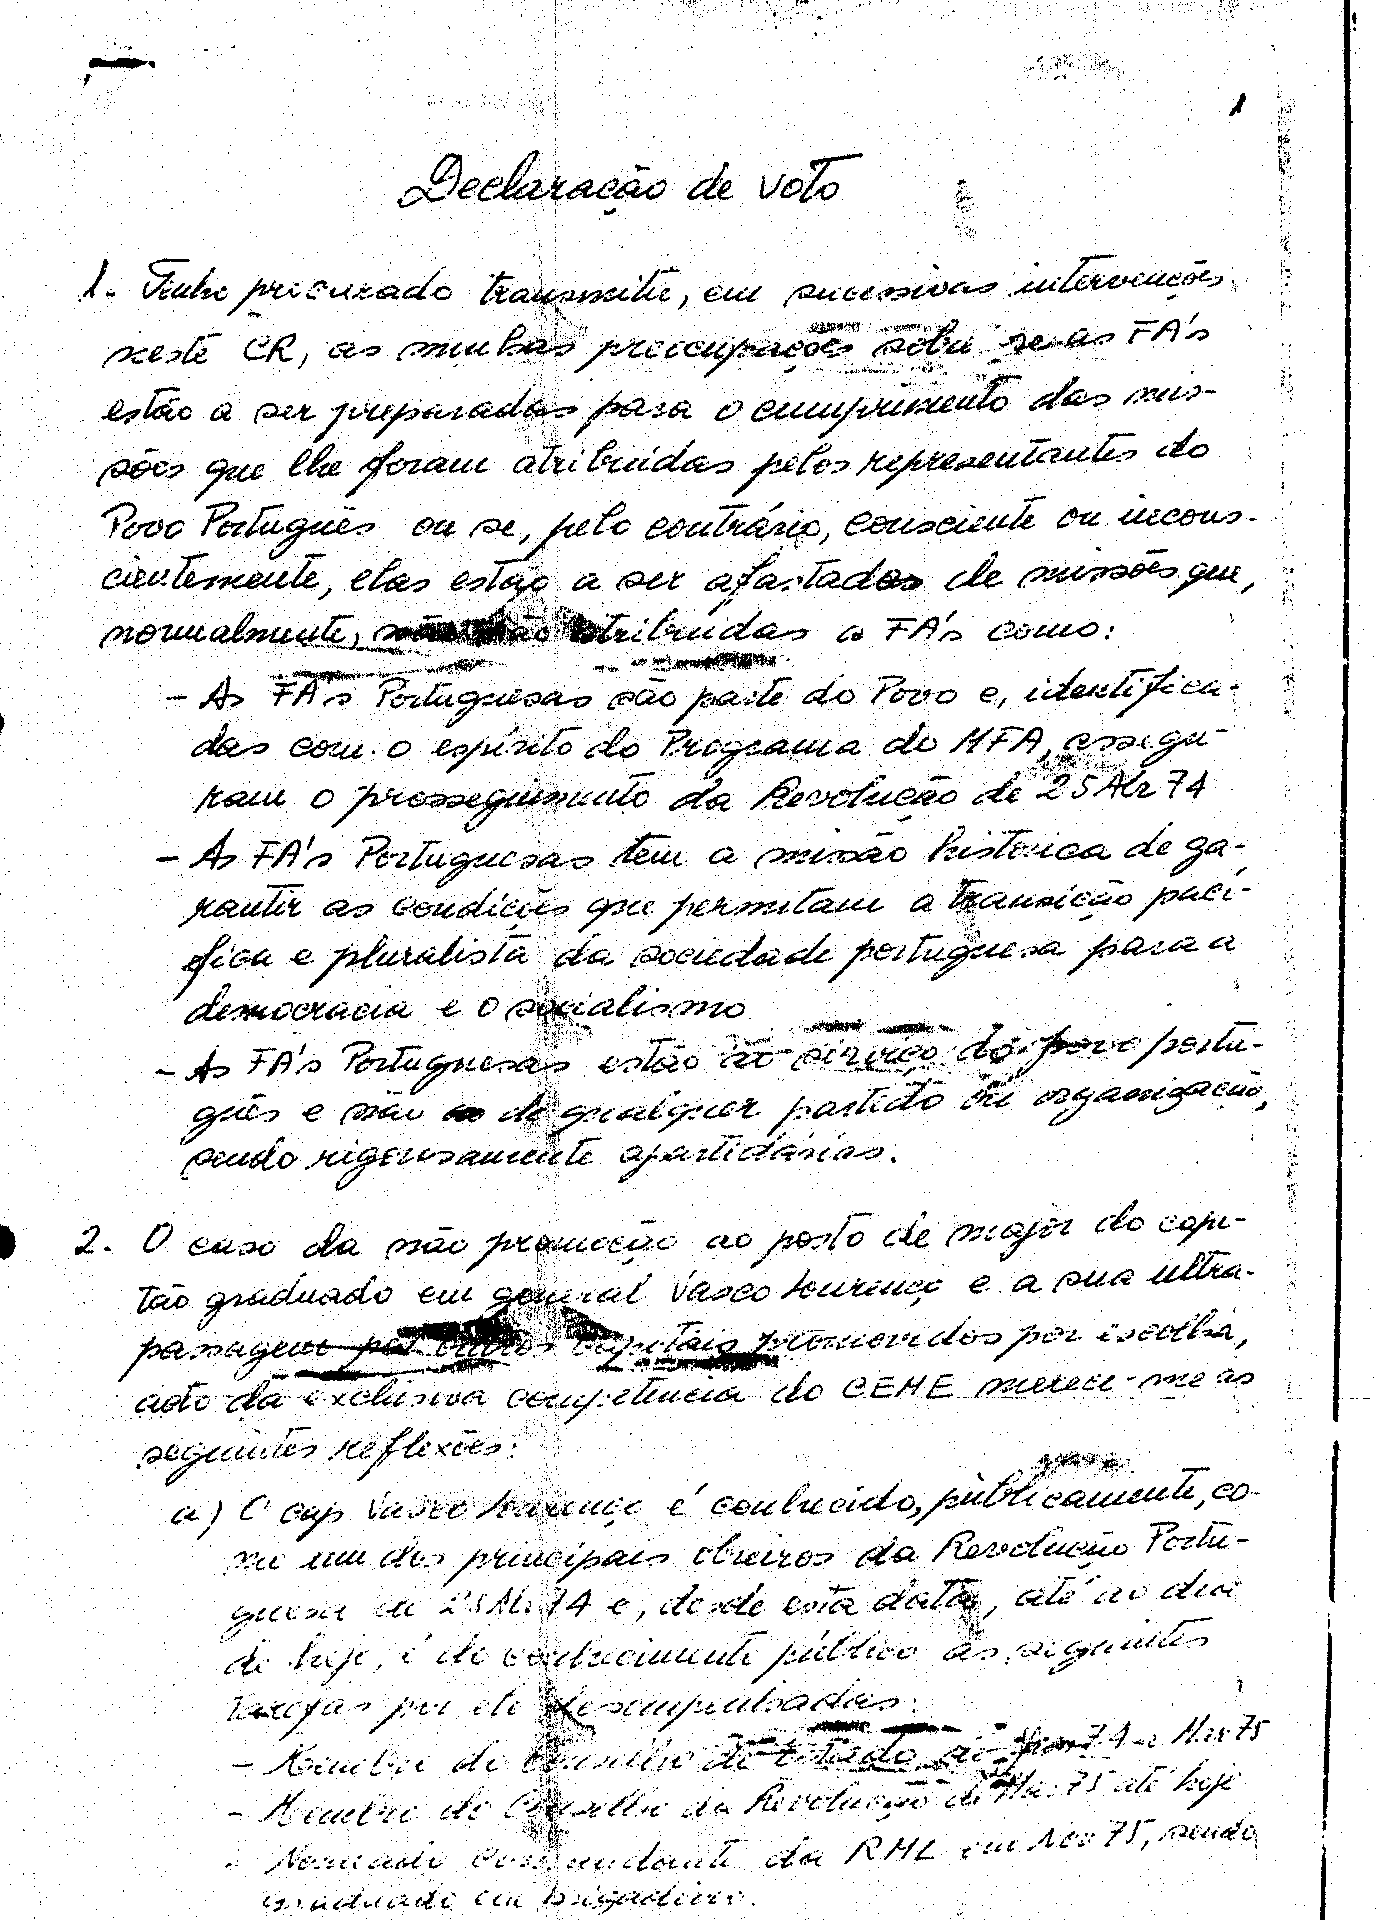 1
Declaração de voto
1. Tenho procurado transmitir, em sucessivas intervenções
neste CR, as minhas preocupações sobre se as FA's
estão a ser preparadas para o cumprimento das mis-
sões que lhe foram atribuídas pelos representantes do
Povo Português ou se, pelo contrário, consciente ou incons-
cientemente, elas estão a ser afastadas de missões que,
normalmente, são atribuidas a FA's como:
- As FA's Portuguesas são parte do Povo e, identifica-
das com o espírito do Programa do MFA, assegu-
ram o prosseguimento da Revolução de 25 Abr 74
- As FA's Portuguesas têm a missão histórica de ga-
rantir as condições que permitam a transição pací-
fica e pluralista da sociedade portuguesa para a
democracia e o socialismo
- As FA's Portuguesas estão ao serviço do povo portu-
guês e não de qualquer partido ou organização,
sendo rigorosamente apartidárias.
2. O caso da não promoção ao posto de major do capi-
tão graduado em general Vasco Lourenço e a sua ultra-
passagem por outros capitais promovidos por escolha,
acto da exclusiva competência do CEME merece-me as
seguintes reflexões:
a) O cap Vasco Lourenço é conhecido, públicamente, co-
mo um dos principais obreiros da Revolução Portu-
guesa de 25 Abr 74 e, desde esta data, até ao dia
de hoje, é do conhecimento público as seguintes
tarefas por ele desempenhadas:
- Membro do Conselho de Estado de 74 a Mar 75
- Membro do Conselho da Revolução de Mar 75 até hoje
- Nomeado comandante da RML em Nov 75, sendo
graduado em brigadeiro.